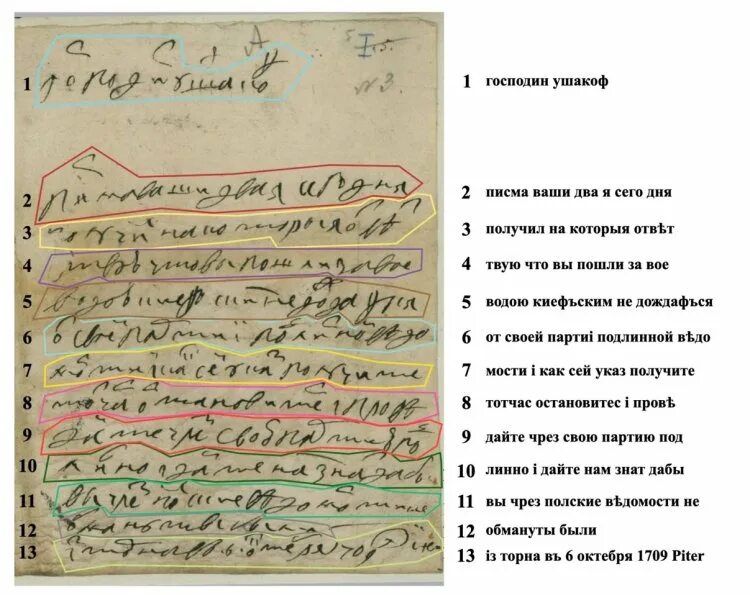 А
I
5.
№3.
1 господин ушакоф
2 писма ваши два я сего дня
3 получил на которыя отвѣт
4 твую что вы пошли за вое
5 водою киефъским не дождафъся
6 от своей партиi подлинной вѣдо
7 мости i как сей указ получите
8 тотчас остановитес i провѣ
9 дайте чрез свою партию под
10 линно i дайте нам знат дабы
11 вы чрез полские вѣдомости не
12 обмануты были
13 iз торна въ 6 октебря 1709 Piter